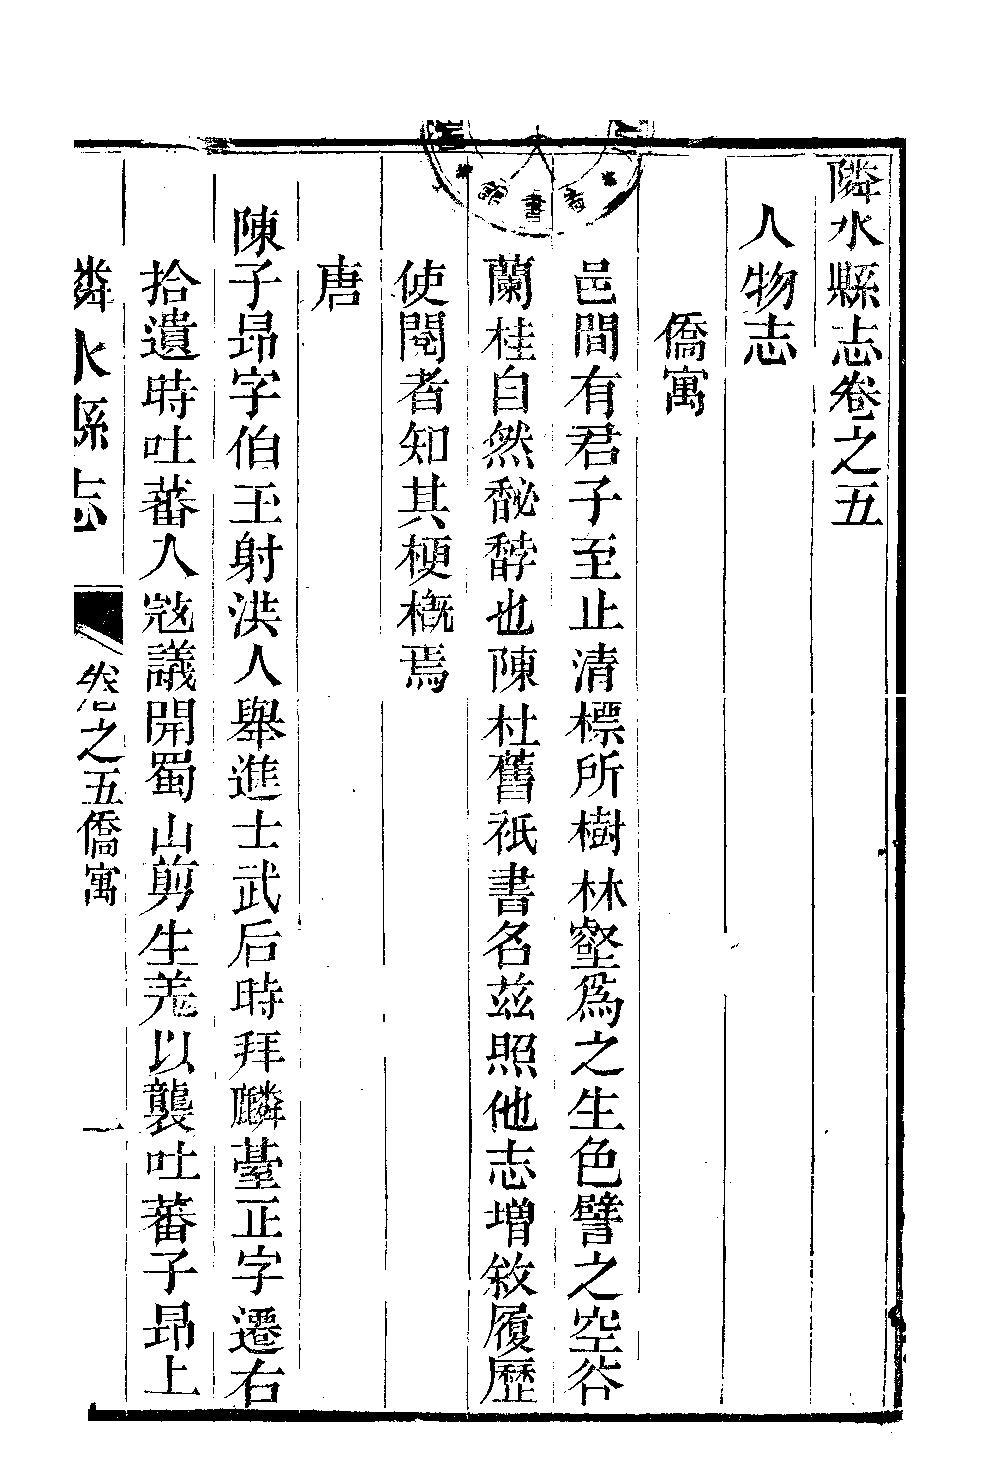 隣水縣志卷之五
人物志
僑寓
邑間有君子至止清標所樹林壑爲之生色譬之空谷
蘭桂自然馝馞也陳杜舊祇書名茲照他志增敘履歷
使閱者知其梗槪焉
唐
陳子昻字伯玉射洪人舉進士武后時拜麟臺正字遷右
拾遺時吐蕃入寇議開蜀山剪生羌以襲吐蕃子昻上
隣水縣志 卷之五僑寓 一